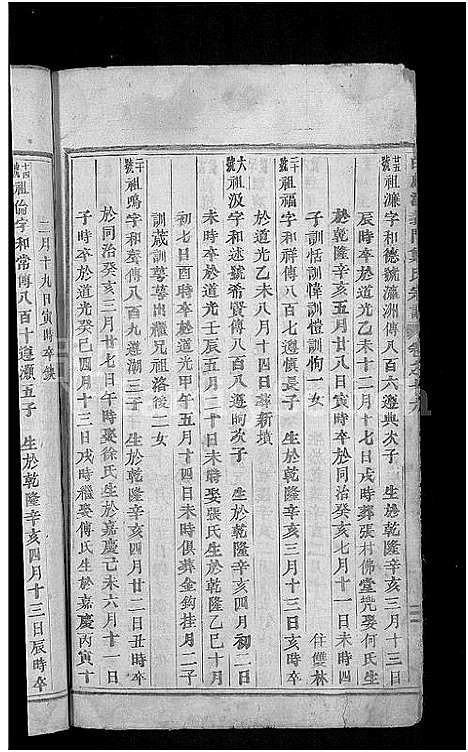 廿五號祖濂字和德號瀛洲傳八百六遵典次子 生於乾隆辛亥三月十三日
辰時卒於道光乙未十二月十七日戌時葬張村佛堂凳娶何氏生
於乾隆辛亥五月廿八日寅時卒於同治癸亥七月十一日未時四
子訓恬訓愇訓愷訓恂一女 住雙林
二十號祖福字和祥傳八百七遵慎長子 生於乾隆辛亥三月
大號祖汲字和述號希賓傳八百八遵晌次子 生於乾隆辛亥四月初二日
於道光乙未八月十四日葬新墳
未時卒於道光壬辰五月二十日未時娶張氏生於乾隆乙巳十月
初七日酉時卒於道光甲午五月十四日未時俱葬金鈎挂月二子
訓葳訓萼萼出繼兄祖洛後二女
二十號祖鳴字和聲傳八百九遵潮三子 生於乾隆辛亥四月廿二日丑時卒
於同治癸亥三月廿七日午時娶徐氏生於嘉慶己未六月十一日
子時卒於道光癸巳四月十三日戌時繼娶傅氏生於嘉慶丙寅十
二月十九日寅時卒缺
十四號祖倫字和常傳八百十遵灝五子 生於乾隆辛亥四月十三日辰時卒